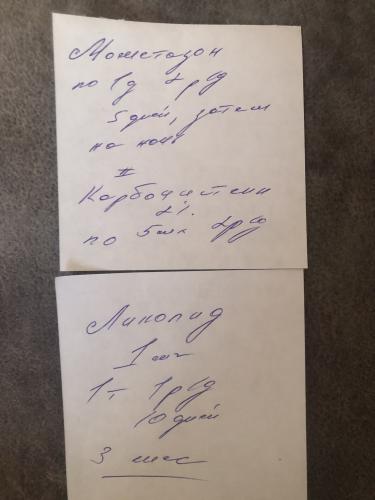 Мометазон
по 1д 2 р/д
5 дней, затем
на ночь
II
Карбоцистеин
2%.
по 5мл 2р/д
Ликопид
1 мг
1т 1р/д
10 дней
3 мес